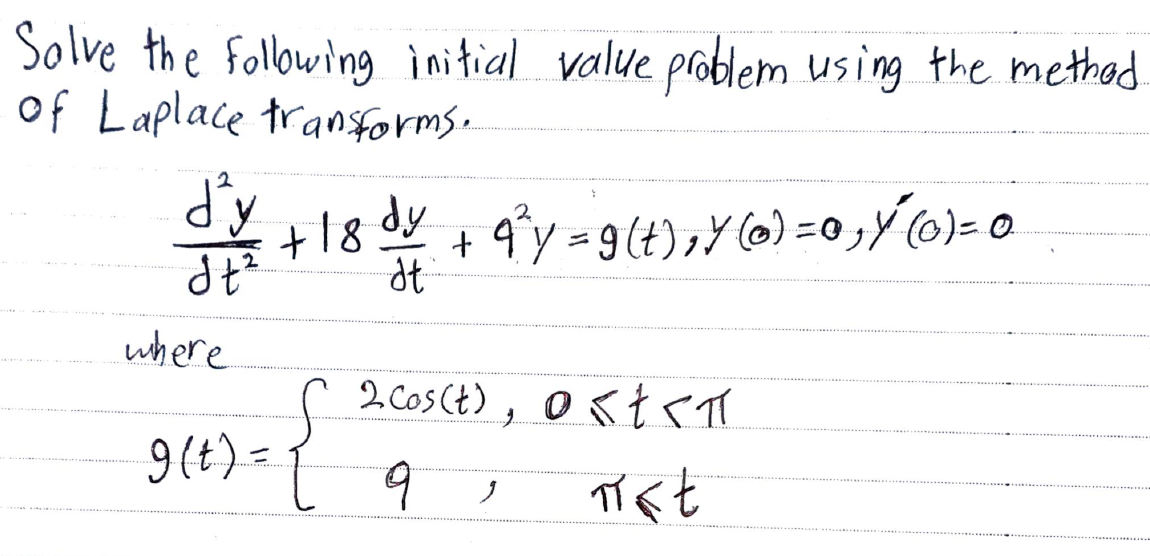 Solve the following initial value problem using the method
of Laplace transforms.
d²y/dt² + 18 dy/dt + 9²y = g(t), y(0) = 0, y'(0) = 0
where
g(t) = { 2cos(t), 0 ⩽ t < π
9, π ⩽ t